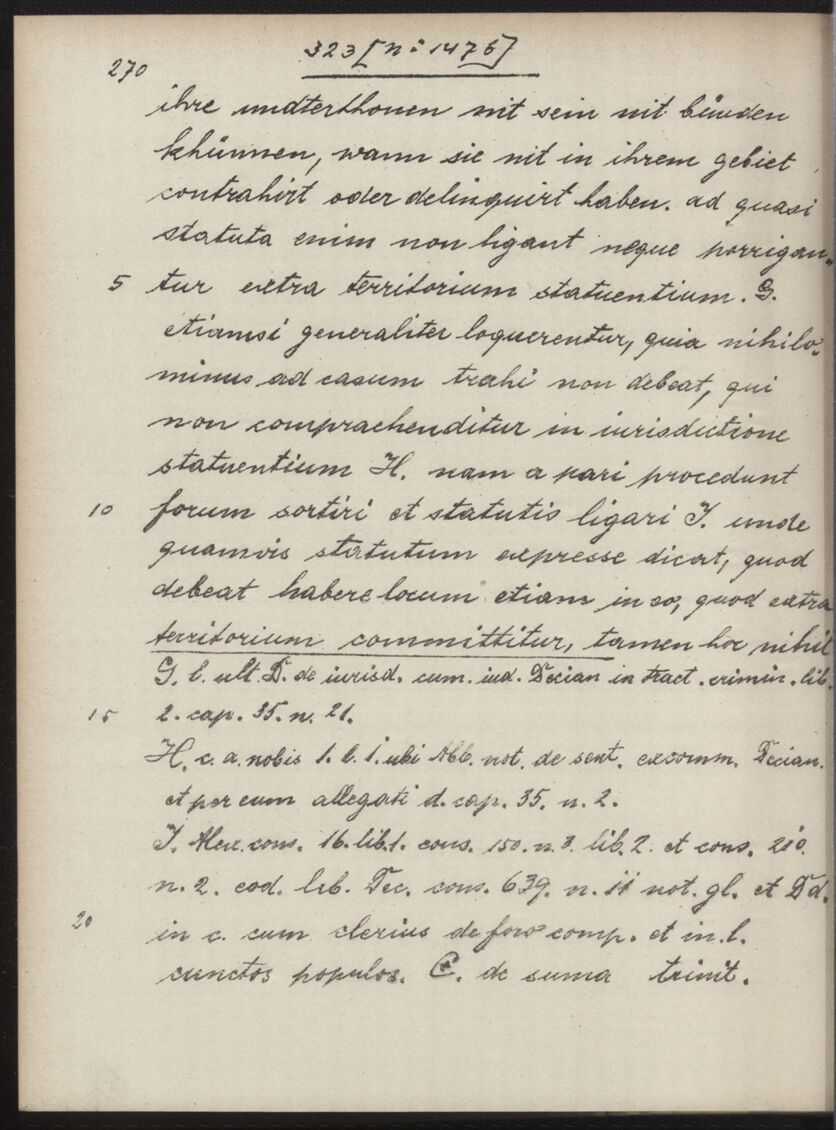 323 [n: 1476]
270
ihre undterthonen mit sein nit bünden
khünnen, wann sie nit in ihrem gebiet
contrahirt oder delinquirt haben. ad quasi
statuta enim non ligant neque porrigan-
5 tur extra territorium statuentium. G.
etiamsi generaliter loquerentur, quia nihilo-
minus ad casum trahi non debeat, qui
non comprachenditur in iurisdictione
statuentium H. nam a pari procedunt
10 forum sortiri et statutis ligari I. unde
quamvis statutum expresse dicat, quod
debeat habere locum etiam in eo, quod extra
territorium committitur, tamen hoc nihil
G. l. ult. D. de iurisd. cum. iud. Decian in tract. crimin. lib.
15 2. cap. 35. n. 21.
H. c. a. nobis 1. l. i. ubi Abb. not. de sent. excomm. Decian.
et per eum allegati d. cap. 35. n. 2.
I. Alex. cons. 16. lib. 1. cons. 150. n. 3. lib. 2. et cons. 210.
n. 2. eod. lib. Dec. cons. 639. n. ii not. gl. et Dd.
20 in c. cum clerius de foro comp. et in. l.
cunctos populos. C. de suma trinit.